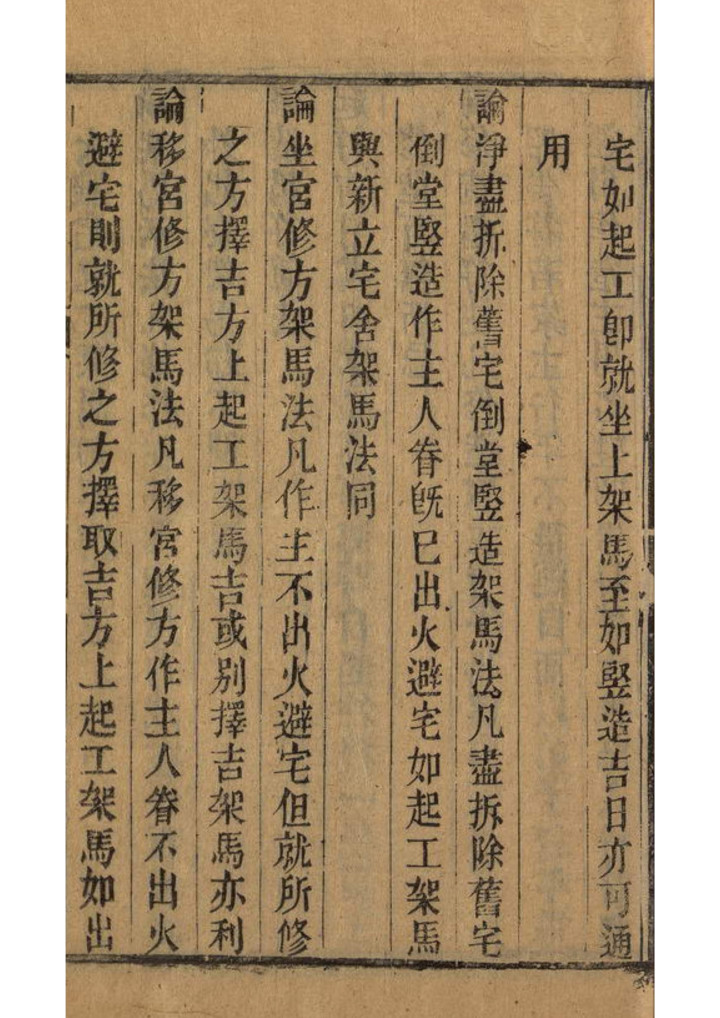 宅如起工卽就坐上架馬至如竪造吉日亦可通
用
論淨盡拆除舊宅倒堂竪造架馬法凡盡拆除舊宅
倒堂竪造作主人眷旣已出火避宅如起工架馬
與新立宅舍架馬法同
論坐宮修方架馬法凡作主不出火避宅但就所修
之方擇吉方上起工架馬吉或别擇吉架馬亦利
論移宮修方架馬法凡移宮修方作主人眷不出火
避宅則就所修之方擇取吉方上起工架馬如出